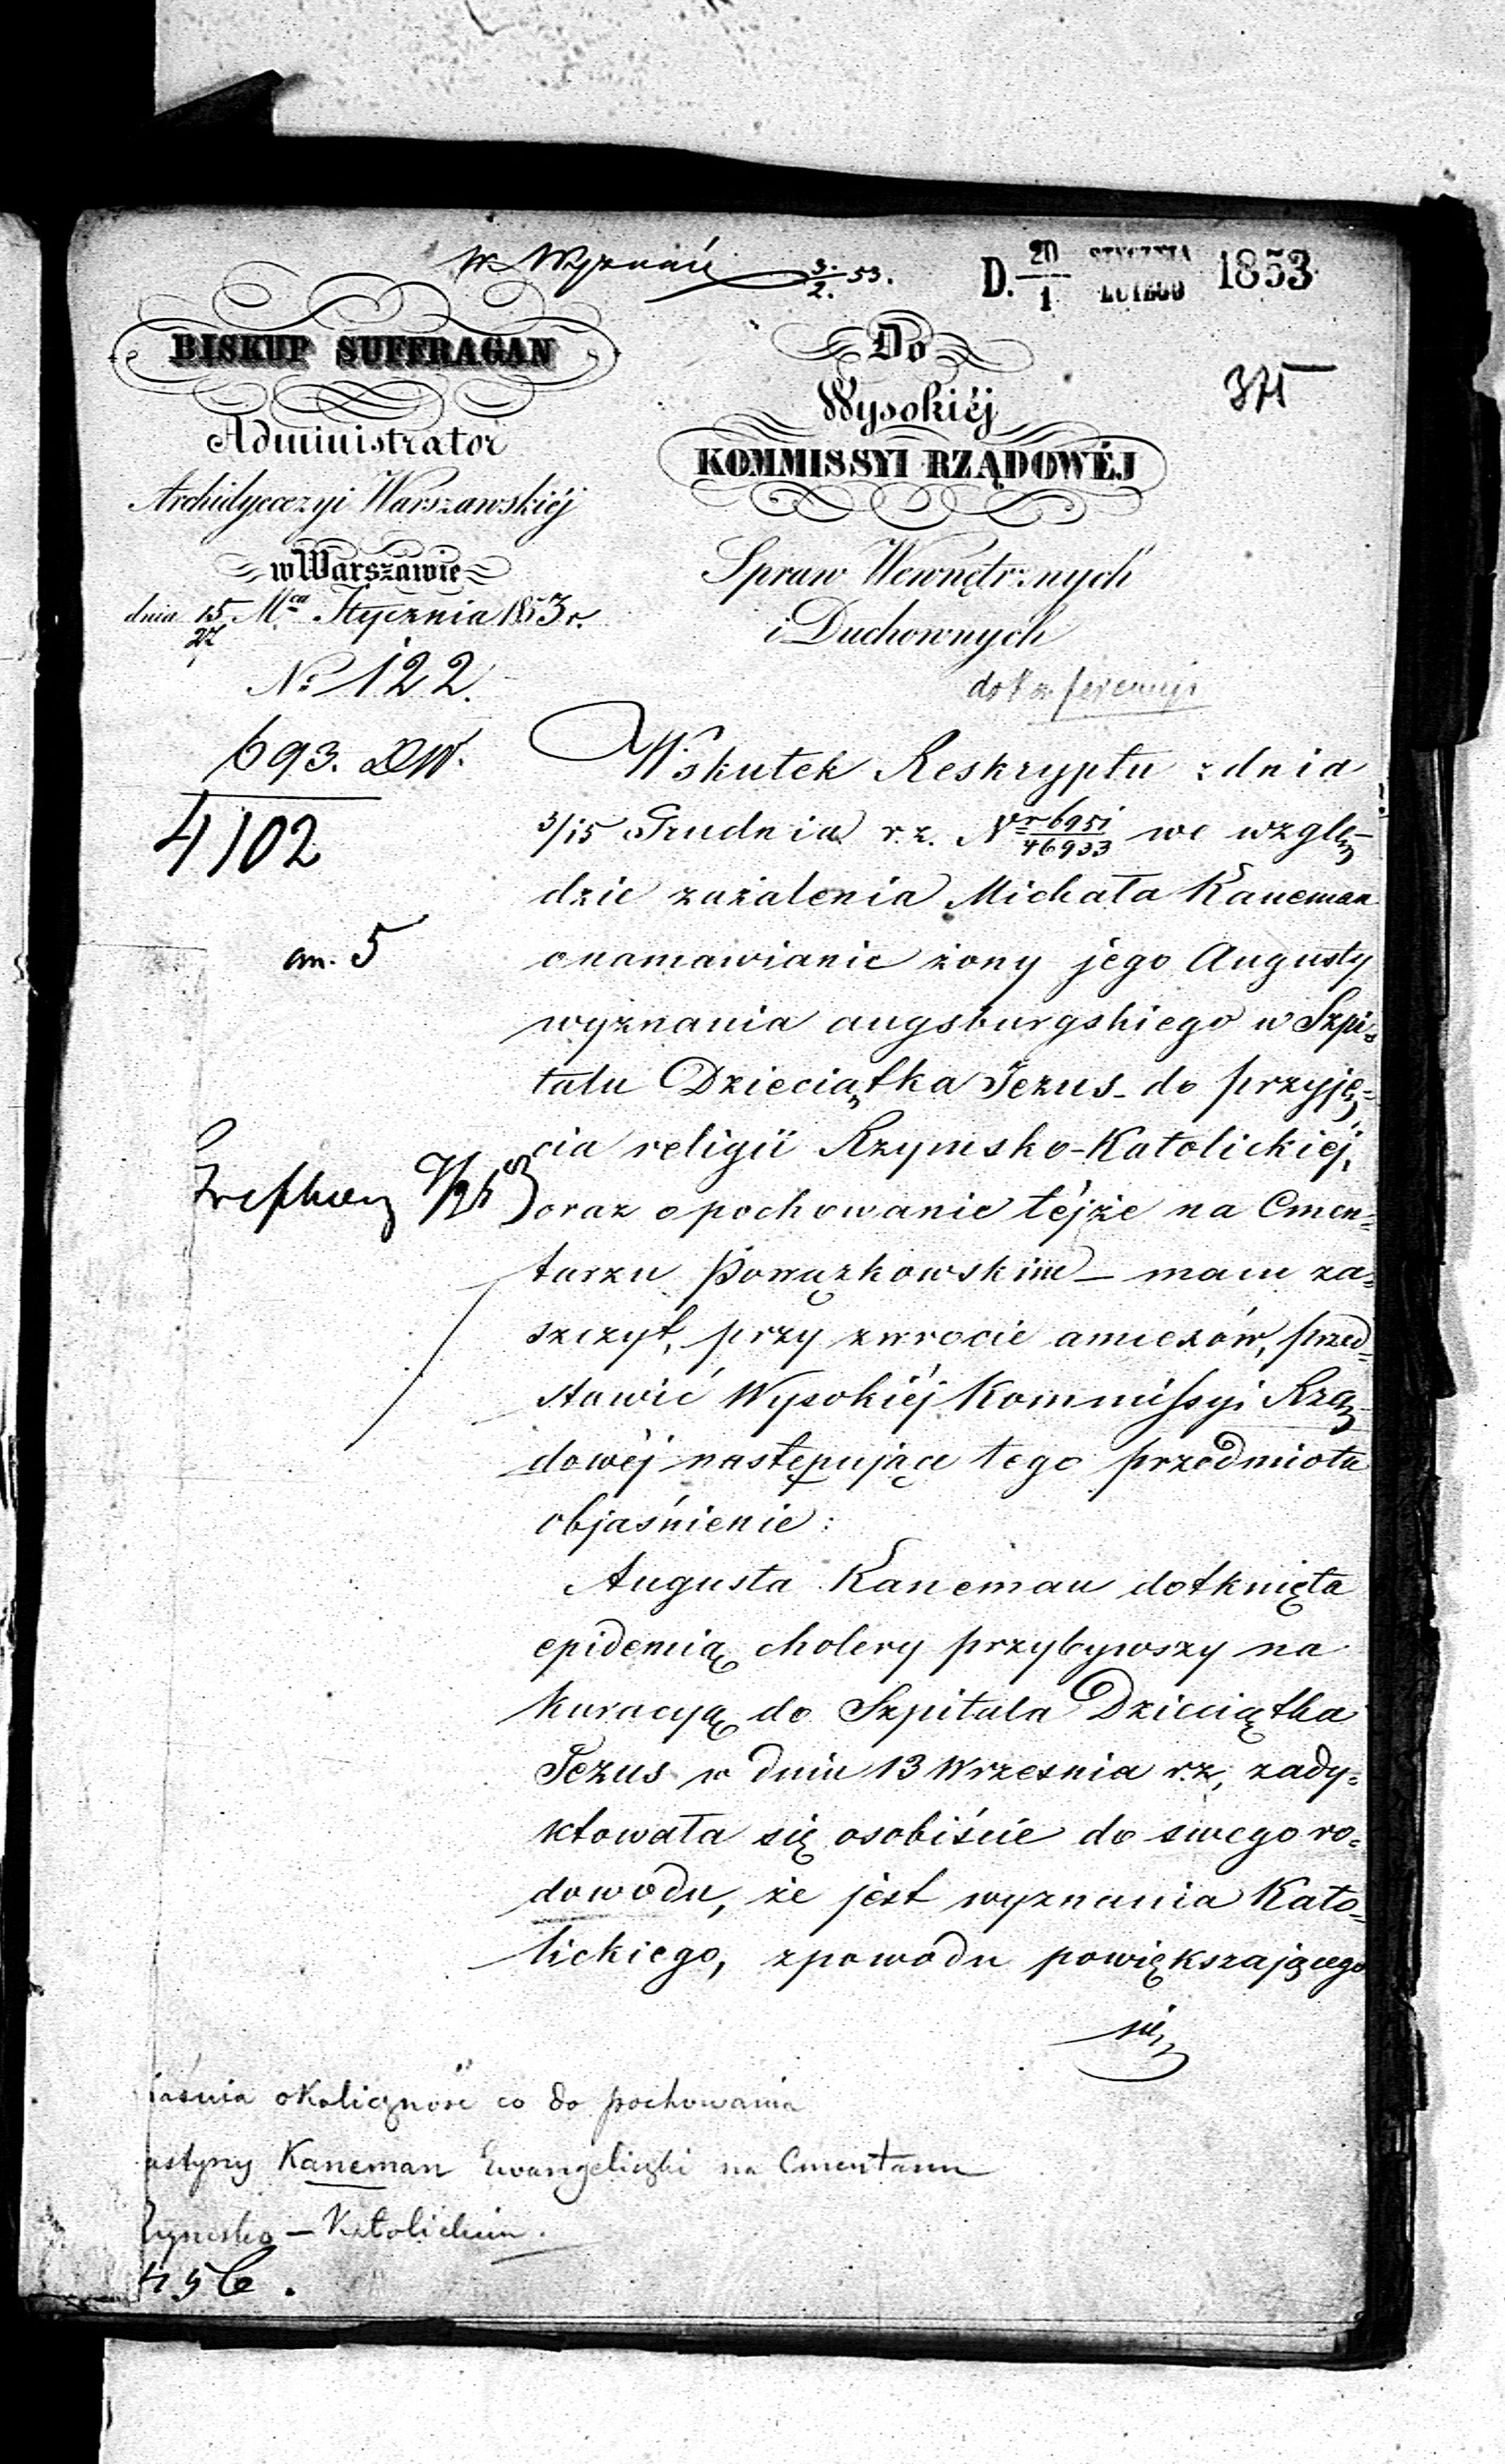 W. Wyznań 3/2. 53.
D. 20/1 STYCZNIA LUTEGO 1853
BISKUP SUFFRAGAN
Administrator
Archidyecezyi Warszawskiéj
w Warszawie
dnia 15/27 Mca Stycznia 1853 r.
No 122.
693.
4102
an. 5
Do
Wysokiéj
KOMMISSYI RZĄDOWÉJ
Spraw Wewnętrznych
i Duchownych
Wskutek Reskryptu z dnia
3/15 Grudnia r. z. Nr 6951/46933 we wzglę-
dzie zażalenia Michała Kaneman
o namawianie żony jego Augusty
wyznania augsburgskiego w Szpi-
talu Dzieciątka Jezus - do przyję-
cia religii Rzymsko-Katolickiéj,
oraz o pochowanie téjże na Cmen-
tarzu Powązkowskim – mam za-
szczyt, przy zwrocie annexów, przed-
stawić Wysokiéj Kommissyi Rzą-
dowéj następujące tego przedmiotu
objaśnienie:
Augusta Kaneman dotknięta
epidemią cholery przybywszy na
kuracyą do Szpitala Dzieciątka
Jezus w dniu 13 Września r.z, zady-
ktowała się osobiście do swego ro-
dowodu, że jest wyznania Kato-
lickiego, z powodu powiększającego
się
jaśnia okoliczność co do pochowania
ustyny Kaneman Ewangeliczki na Cmentarzu
Rzymsko – Katolickim.